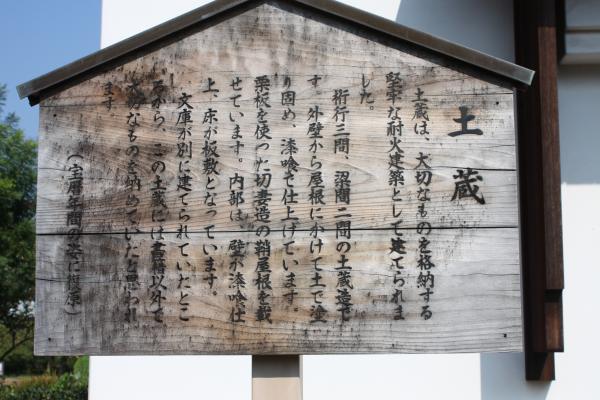 土蔵
土蔵は、大切なものを格納する
堅牢な耐火建築として建てられま
した。
桁行三間、梁間二間の土蔵造で
す。外壁から屋根にかけて土で塗
り固め、漆喰で仕上げています。
栗板を使った切妻造の鞘屋根を載
せています。内部は、壁が漆喰仕
上、床が板敷となっています。
文庫が別に建てられていたとこ
ろから、この土蔵には書籍以外で
大切なものを納めていたと思われ
ます。
（宝暦年間の姿に復原）